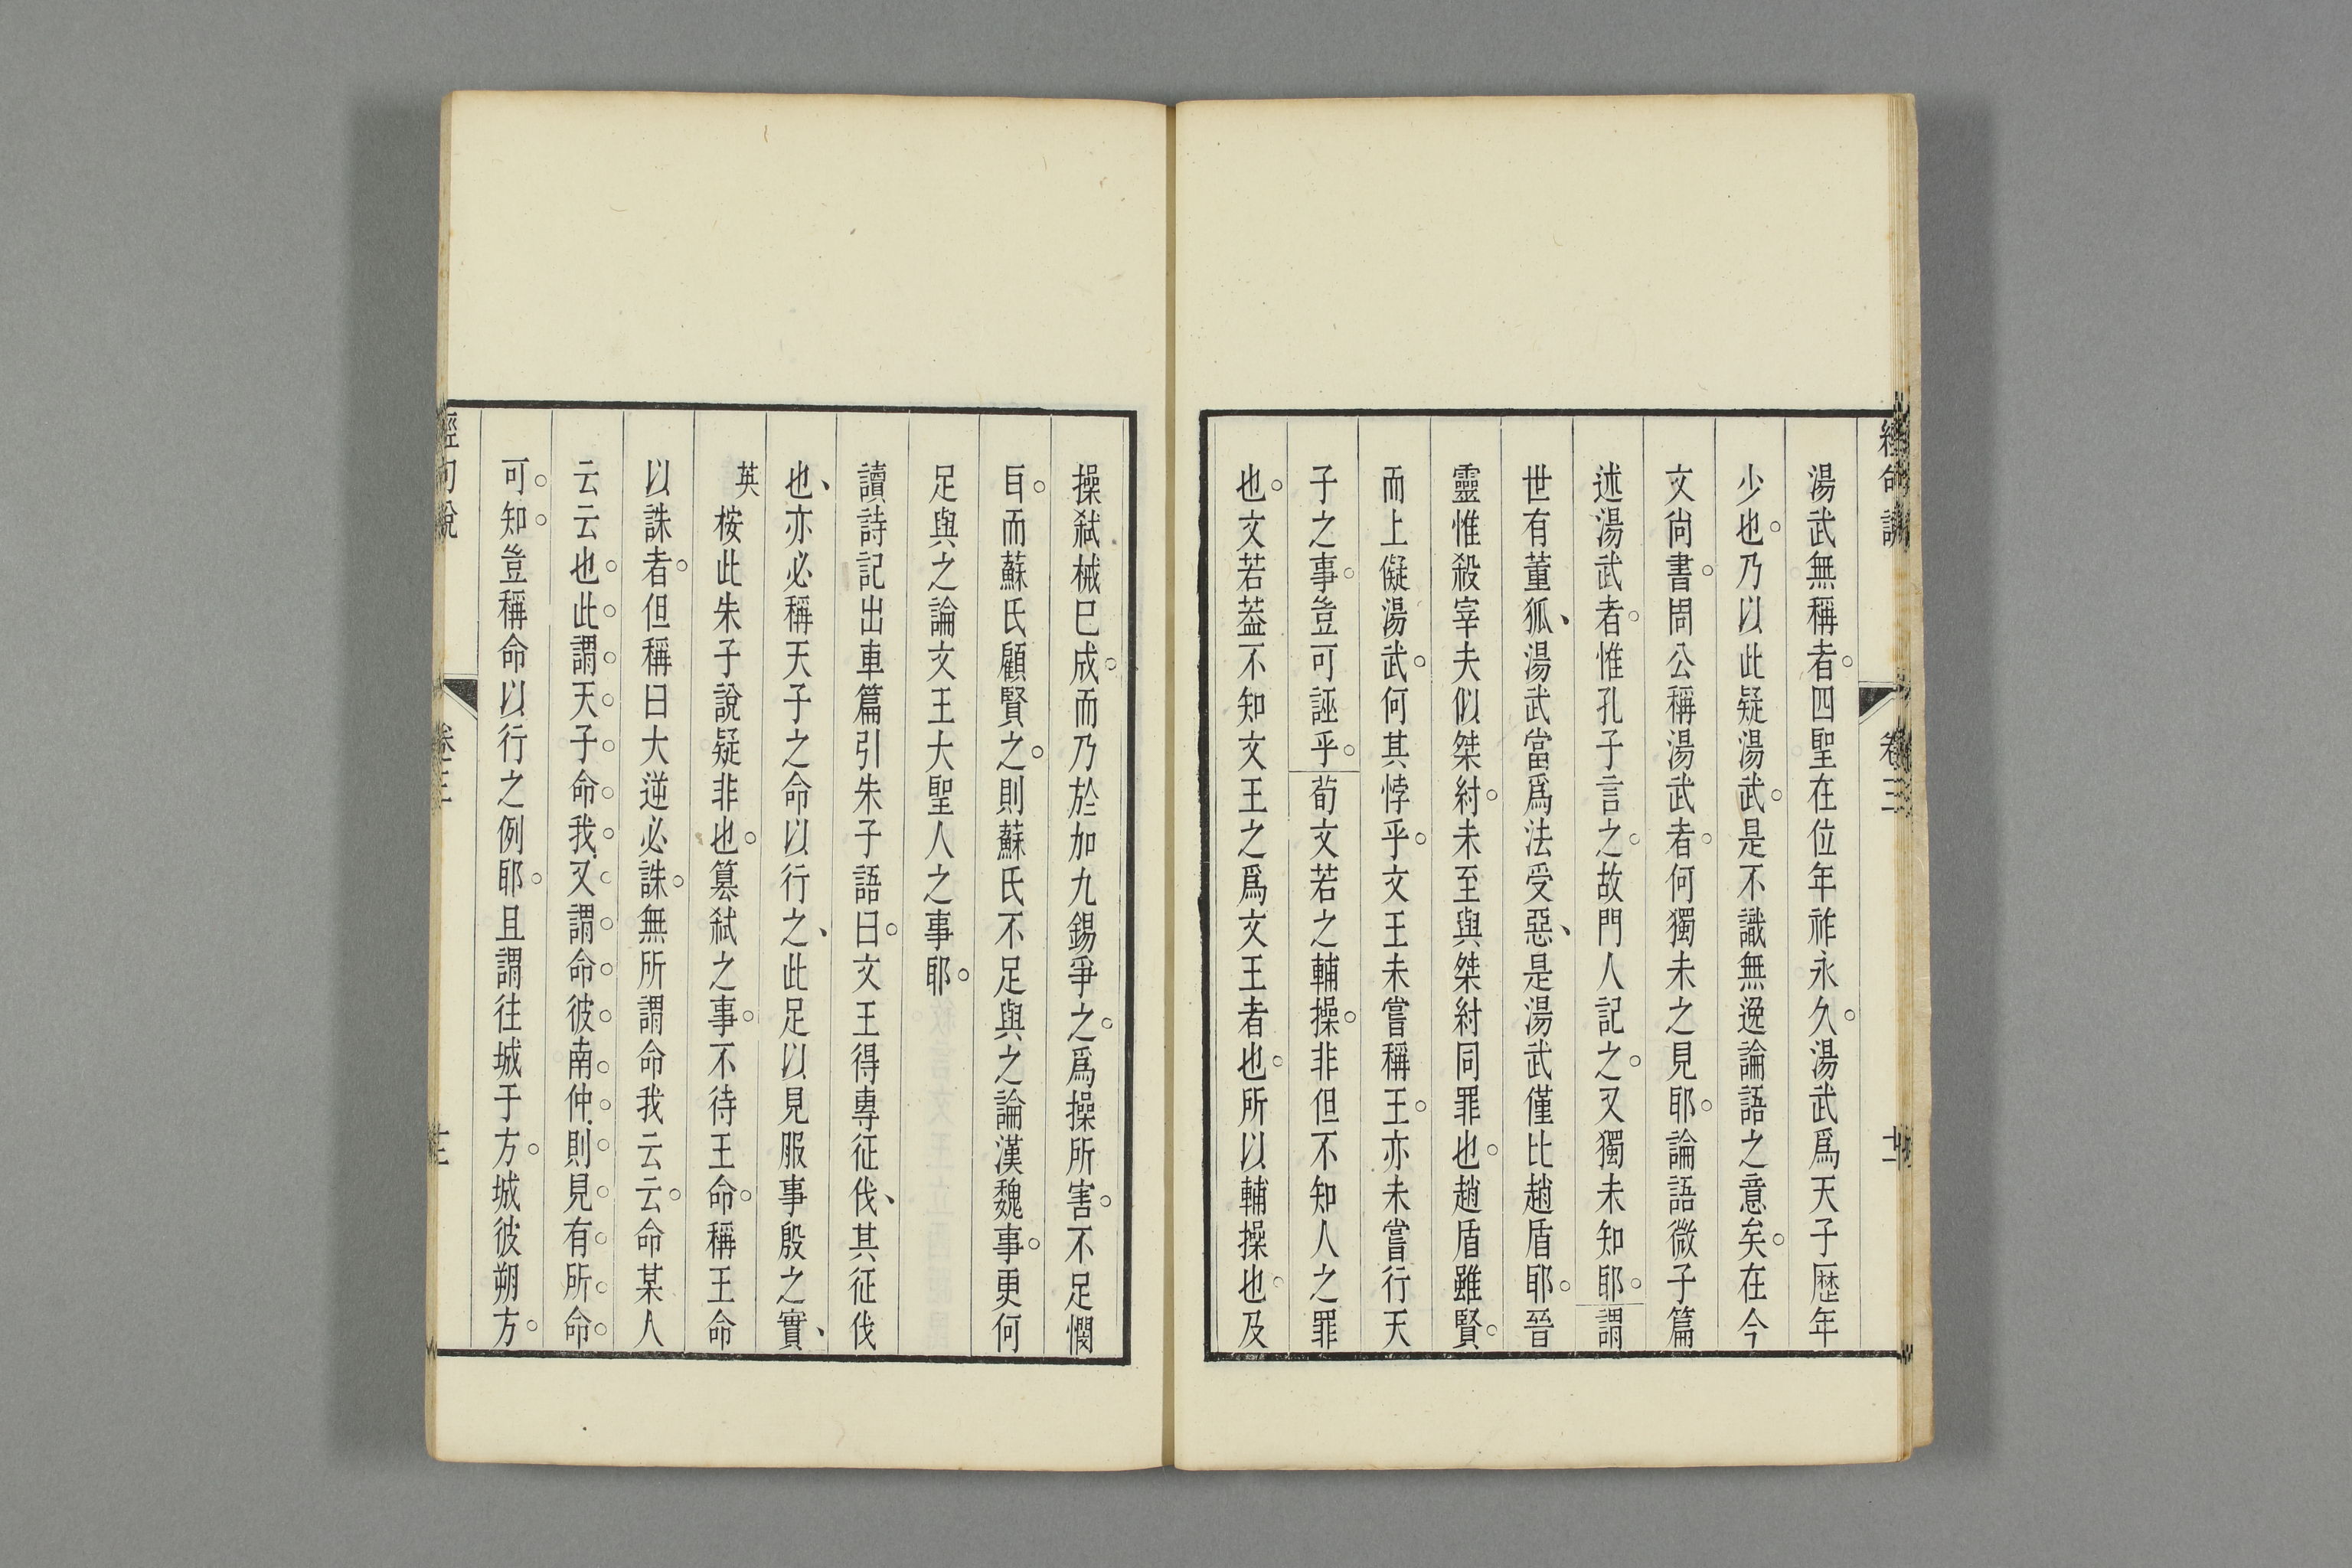 經句說
卷三
湯武無稱者。四聖在位年祚永久。湯武爲天子歷年
少也。乃以此疑湯武。是不識無逸論語之意矣。在今
文尙書。周公稱湯武者。何獨未之見耶。論語微子篇
述湯武者。惟孔子言之。故門人記之。又獨未知耶。謂
世有董狐、湯武當爲法受惡、是湯武僅比趙盾耶。晉
靈惟殺宰夫似桀紂。未至與桀紂同罪也。趙盾雖賢。
而上儗湯武。何其悖乎。文王未嘗稱王。亦未嘗行天
子之事。豈可誣乎。荀文若之輔操。非但不知人之罪
也。文若葢不知文王之爲文王者也。所以輔操也。及
操弑械巳成。而乃於加九錫爭之。爲操所害。不足憫
㠯。而蘇氏顧賢之。則蘇氏不足與之論漢魏事。更何
足與之論文王大聖人之事耶。
讀詩記出車篇引朱子語曰。文王得專征伐、其征伐
也、亦必稱天子之命以行之、此足以見服事殷之實、
英
桉此朱子說疑非也。篡弑之事。不待王命。稱王命
以誅者。但稱曰大逆必誅。無所謂命我云云。命某人
云云也。此。謂。天。子。命。我。又。謂。命。彼。南。仲。則。見。有。所。命。
可。知。豈稱命以行之例耶。且謂往城于方。城彼朔方。
經句說
卷三